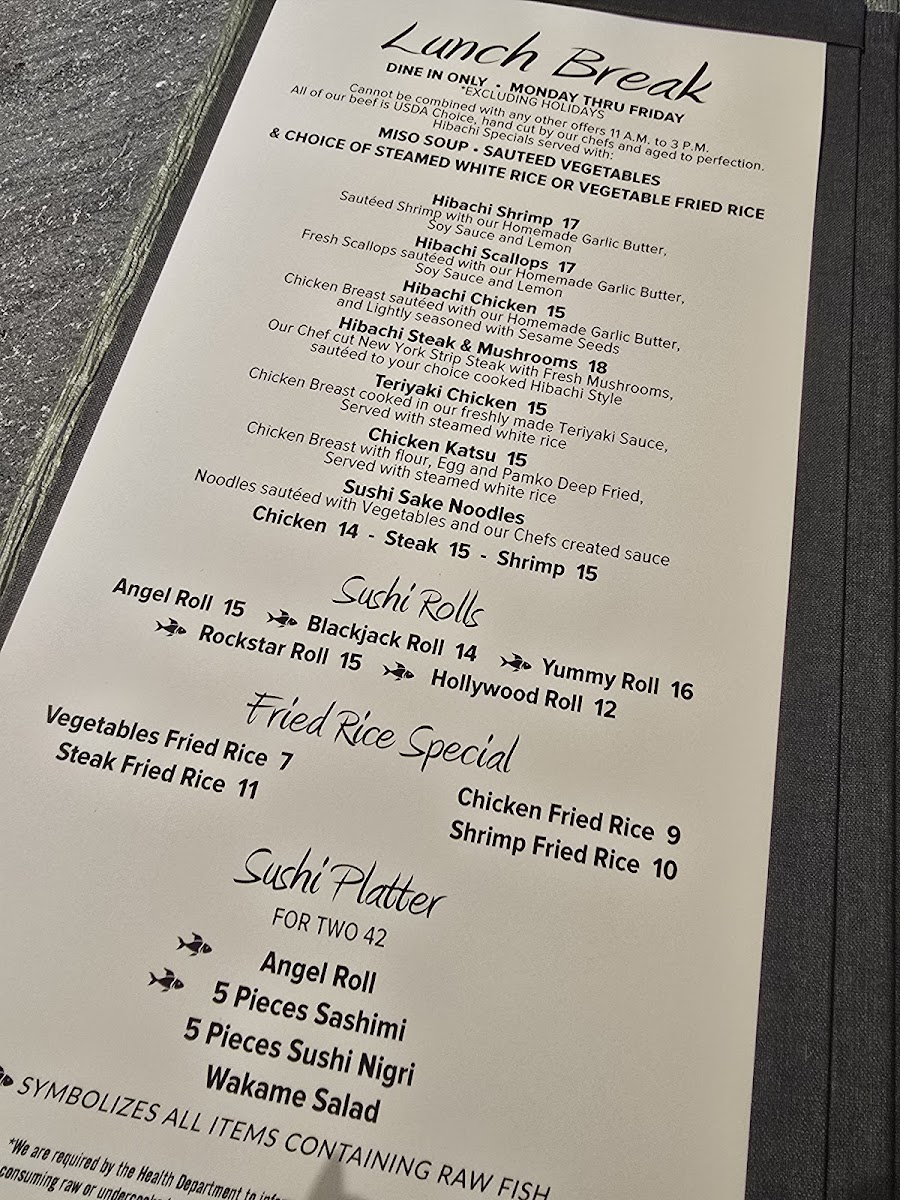 Lunch Break
DINE IN ONLY • MONDAY THRU FRIDAY
*EXCLUDING HOLIDAYS
Cannot be combined with any other offers 11 A.M. to 3 P.M.
All of our beef is USDA Choice, hand cut by our chefs and aged to perfection.
Hibachi Specials served with:
MISO SOUP • SAUTEED VEGETABLES
& CHOICE OF STEAMED WHITE RICE OR VEGETABLE FRIED RICE
Hibachi Shrimp 17
Sautéed Shrimp with our Homemade Garlic Butter,
Soy Sauce and Lemon
Hibachi Scallops 17
Fresh Scallops sautéed with our Homemade Garlic Butter,
Soy Sauce and Lemon
Hibachi Chicken 15
Chicken Breast sautéed with our Homemade Garlic Butter,
and Lightly seasoned with Sesame Seeds
Hibachi Steak & Mushrooms 18
Our Chef cut New York Strip Steak with Fresh Mushrooms,
sautéed to your choice cooked Hibachi Style
Teriyaki Chicken 15
Chicken Breast cooked in our freshly made Teriyaki Sauce,
Served with steamed white rice
Chicken Katsu 15
Chicken Breast with flour, Egg and Pamko Deep Fried,
Served with steamed white rice
Sushi Sake Noodles
Noodles sautéed with Vegetables and our Chefs created sauce
Chicken 14 - Steak 15 - Shrimp 15
Sushi Rolls
Angel Roll 15 Blackjack Roll 14 Yummy Roll 16
Rockstar Roll 15 Hollywood Roll 12
Fried Rice Special
Vegetables Fried Rice 7
Steak Fried Rice 11
Chicken Fried Rice 9
Shrimp Fried Rice 10
Sushi Platter
FOR TWO 42
Angel Roll
5 Pieces Sashimi
5 Pieces Sushi Nigri
Wakame Salad
SYMBOLIZES ALL ITEMS CONTAINING RAW FISH
*We are required by the Health Department to
consuming raw or